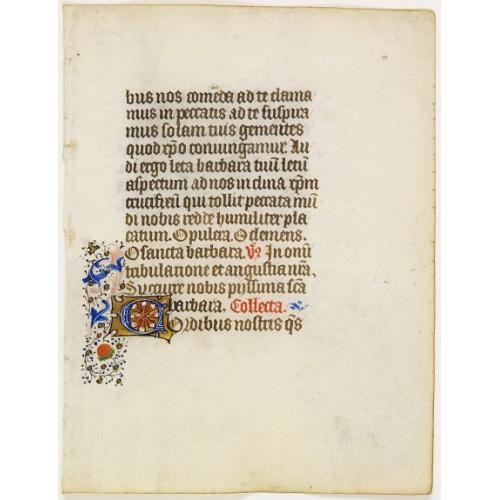 bus nos comeda ad te clama
mus in peccatis ad te suspira
mus solam tuis gementes
quod xp̄o coniungamur. Au
di ergo leta barbara tuū letū
aspectum ad nos inclina xp̄m
crucifixū qui tollit peccata mū
di nobis redde humiliter pla
catum. O pulcra. O clemens.
O sancta barbara. V̄. In om̄i
tribulatione et angustia nr̄a.
Succure nobis pyssima sc̄a
barbara. Collecta.
Cordibus nostris qs̄